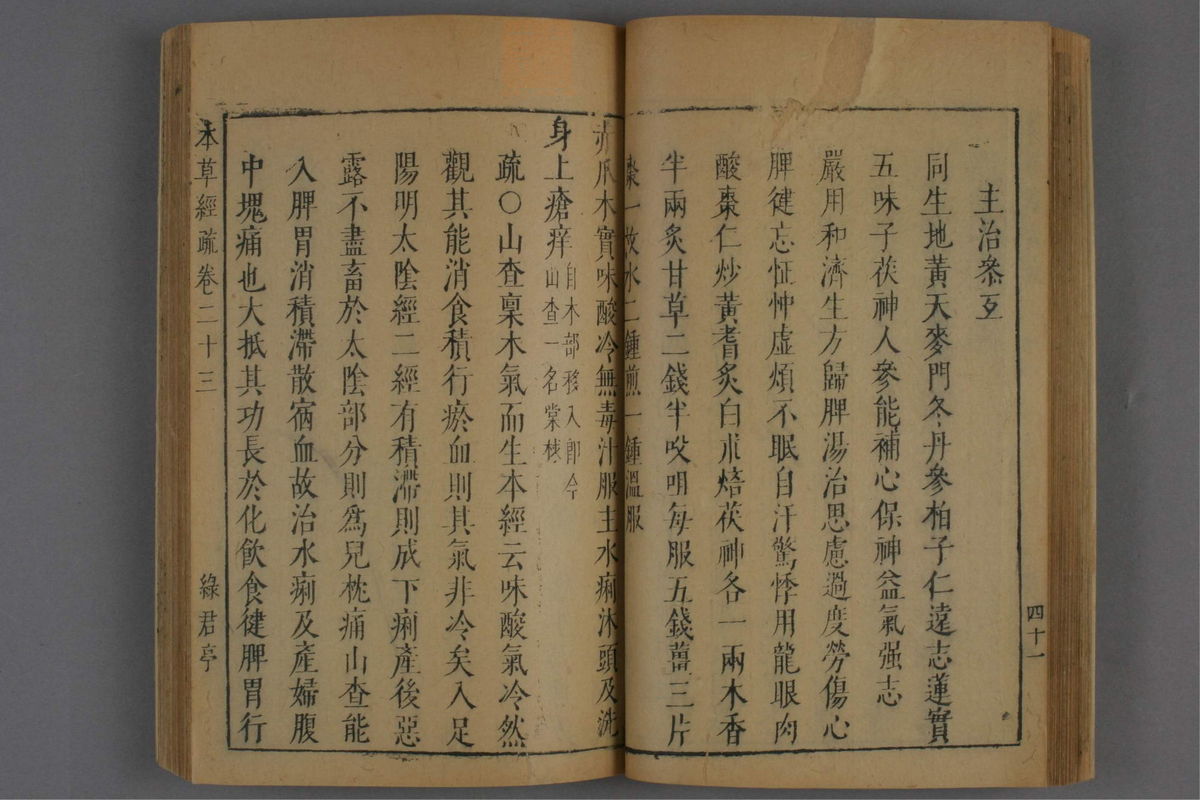 主治叅互
同生地黃天麥門冬丹參柏子仁遠志蓮實
五味子茯神人參能補心保神益氣强志
嚴用和濟生方歸脾湯治思慮過度勞傷心
脾健忘怔忡虛煩不眠自汗驚悸用龍眼肉
酸棗仁炒黃耆炙白朮焙茯神各一兩木香
半兩炙甘草二錢半㕮咀每服五錢薑三片
棗一枚水二鍾煎一鍾溫服
四十一
赤爪木實味酸冷無毒汁服主水痢沐頭及洗
身上瘡痒自木部移入卽今
山查一名棠梂
疏○山查稟木氣而生本經云味酸氣冷然
觀其能消食積行瘀血則其氣非冷矣入足
陽明太陰經二經有積滯則成下痢產後惡
露不盡畜於太陰部分則爲兒枕痛山查能
入脾胃消積滯散宿血故治水痢及產婦腹
中塊痛也大抵其功長於化飲食健脾胃行
本草經疏卷二十三
綠君亭